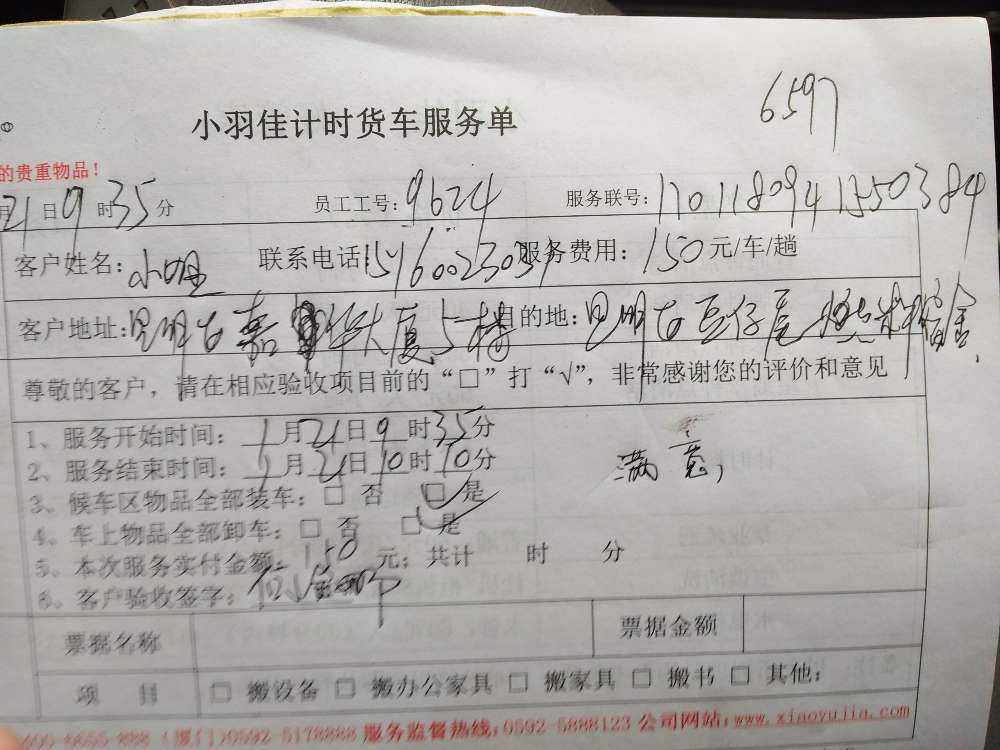 6597
小羽佳计时货车服务单
的贵重物品！
月21日9时35分 员工工号：9624 服务联号：17011809413550384
客户姓名：小姐 联系电话 服务费用：150元/车/趟
客户地址： 嘉 华大厦5楼 目的地： 豆仔尾 宿舍
尊敬的客户，请在相应验收项目前的“□”打“√”，非常感谢您的评价和意见
1、服务开始时间：1月21日9时35分
2、服务结束时间：1月21日10时10分
满意
3、候车区物品全部装车：□ 否 □ 是
4、车上物品全部卸车：□ 否 □ 是
5、本次服务实付金额：150元；共计 时 分
6、客户验收签字：
票据名称 票据金额
项 目 □ 搬设备 □ 搬办公家具 □ 搬家具 □ 搬书 □ 其他：
-6655-888（厦门）0592-5178888 服务监督热线：0592-5888123 公司网站：www.xiaoyujia.com